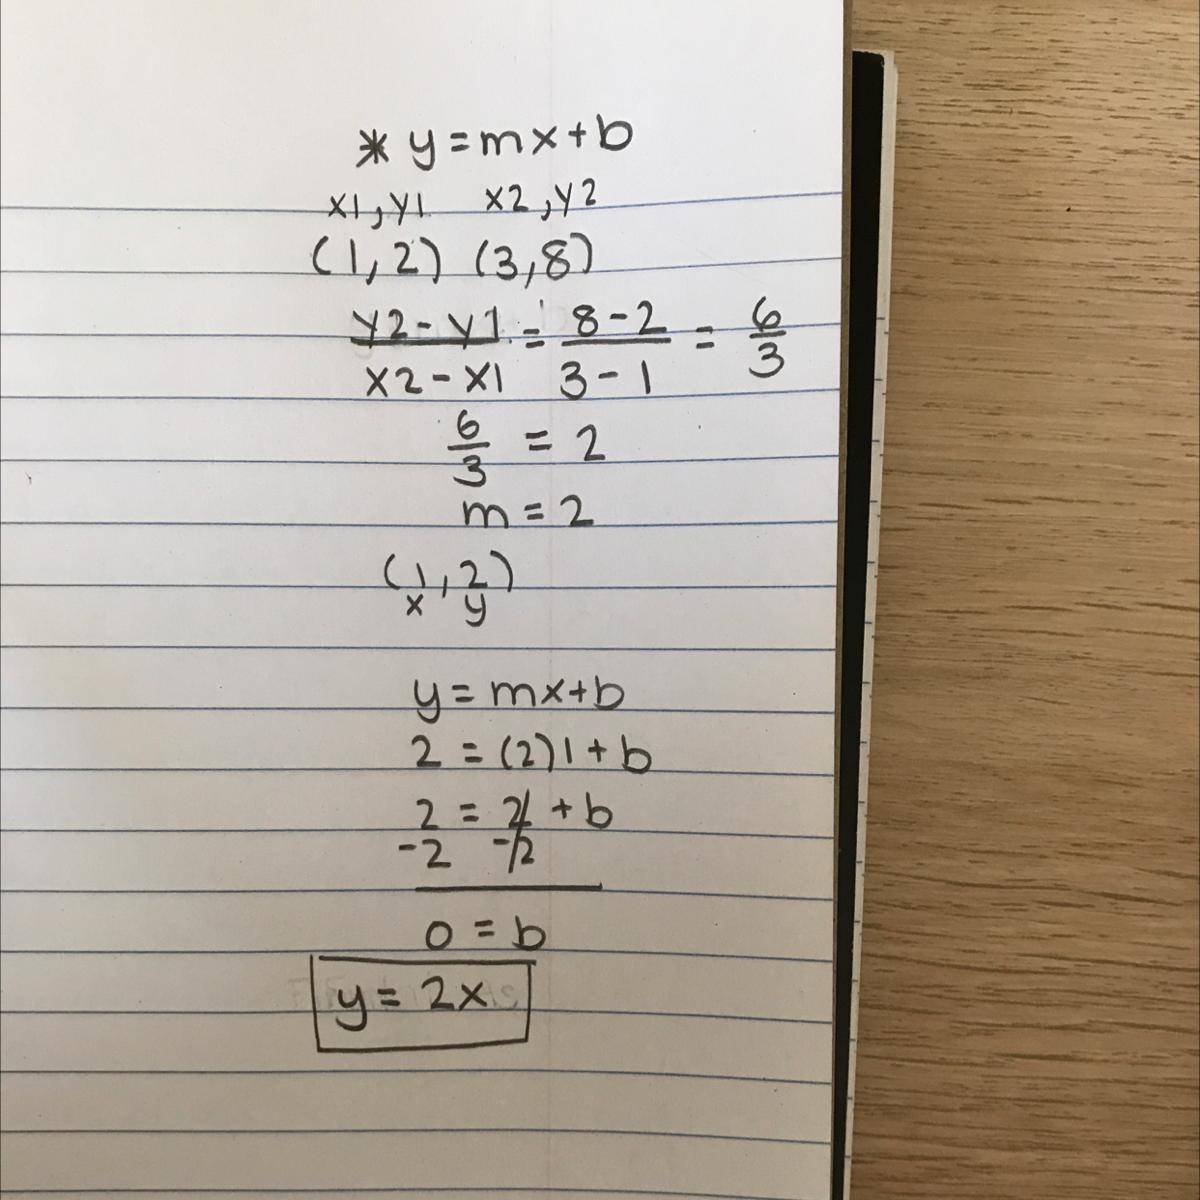 * y = mx + b
x1, y1 x2, y2
(1, 2) (3, 8)
y2 - y1 / x2 - x1 = 8 - 2 / 3 - 1 = 6/3
6/3 = 2
m = 2
(1, 2)
x y
y = mx + b
2 = (2)1 + b
2 = 2 + b
-2 -2
0 = b
y = 2x